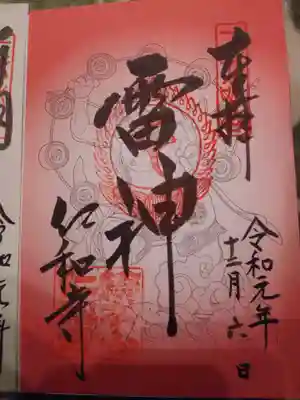 奉拝
令和元年
十二月六日
雷神
仁和寺